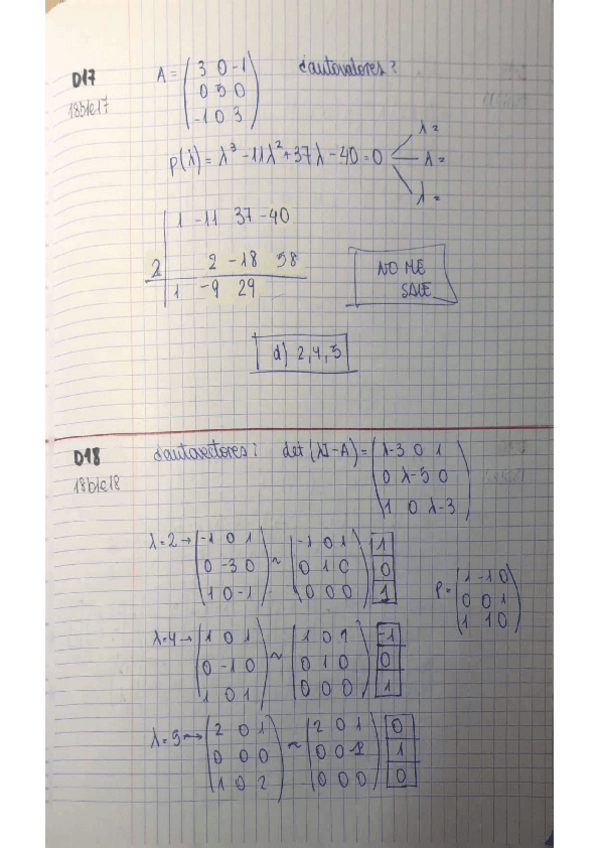 D17
18b1e17
A = (3 0 -1
0 5 0
-1 0 3)
¿autovalores?
p(λ) = λ³ - 11λ² + 37λ - 40 = 0
λ =
λ =
λ =
1 -11 37 -40
2 2 -18 38
1 -9 29
NO ME
SALE
d) 2, 4, 5
D18
18b1e18
¿autovectores? det (λI - A) = (λ-3 0 1
0 λ-5 0
1 0 λ-3)
λ=2 → (-1 0 1
0 -3 0
1 0 -1) ~ (-1 0 1
0 1 0
0 0 0)
1
0
1
P = (1 -1 0
0 0 1
1 1 0)
λ=4 → (1 0 1
0 -1 0
1 0 1) ~ (1 0 1
0 1 0
0 0 0)
-1
0
1
λ=5 → (2 0 1
0 0 0
1 0 2) ~ (2 0 1
0 0 1
0 0 0)
0
1
0